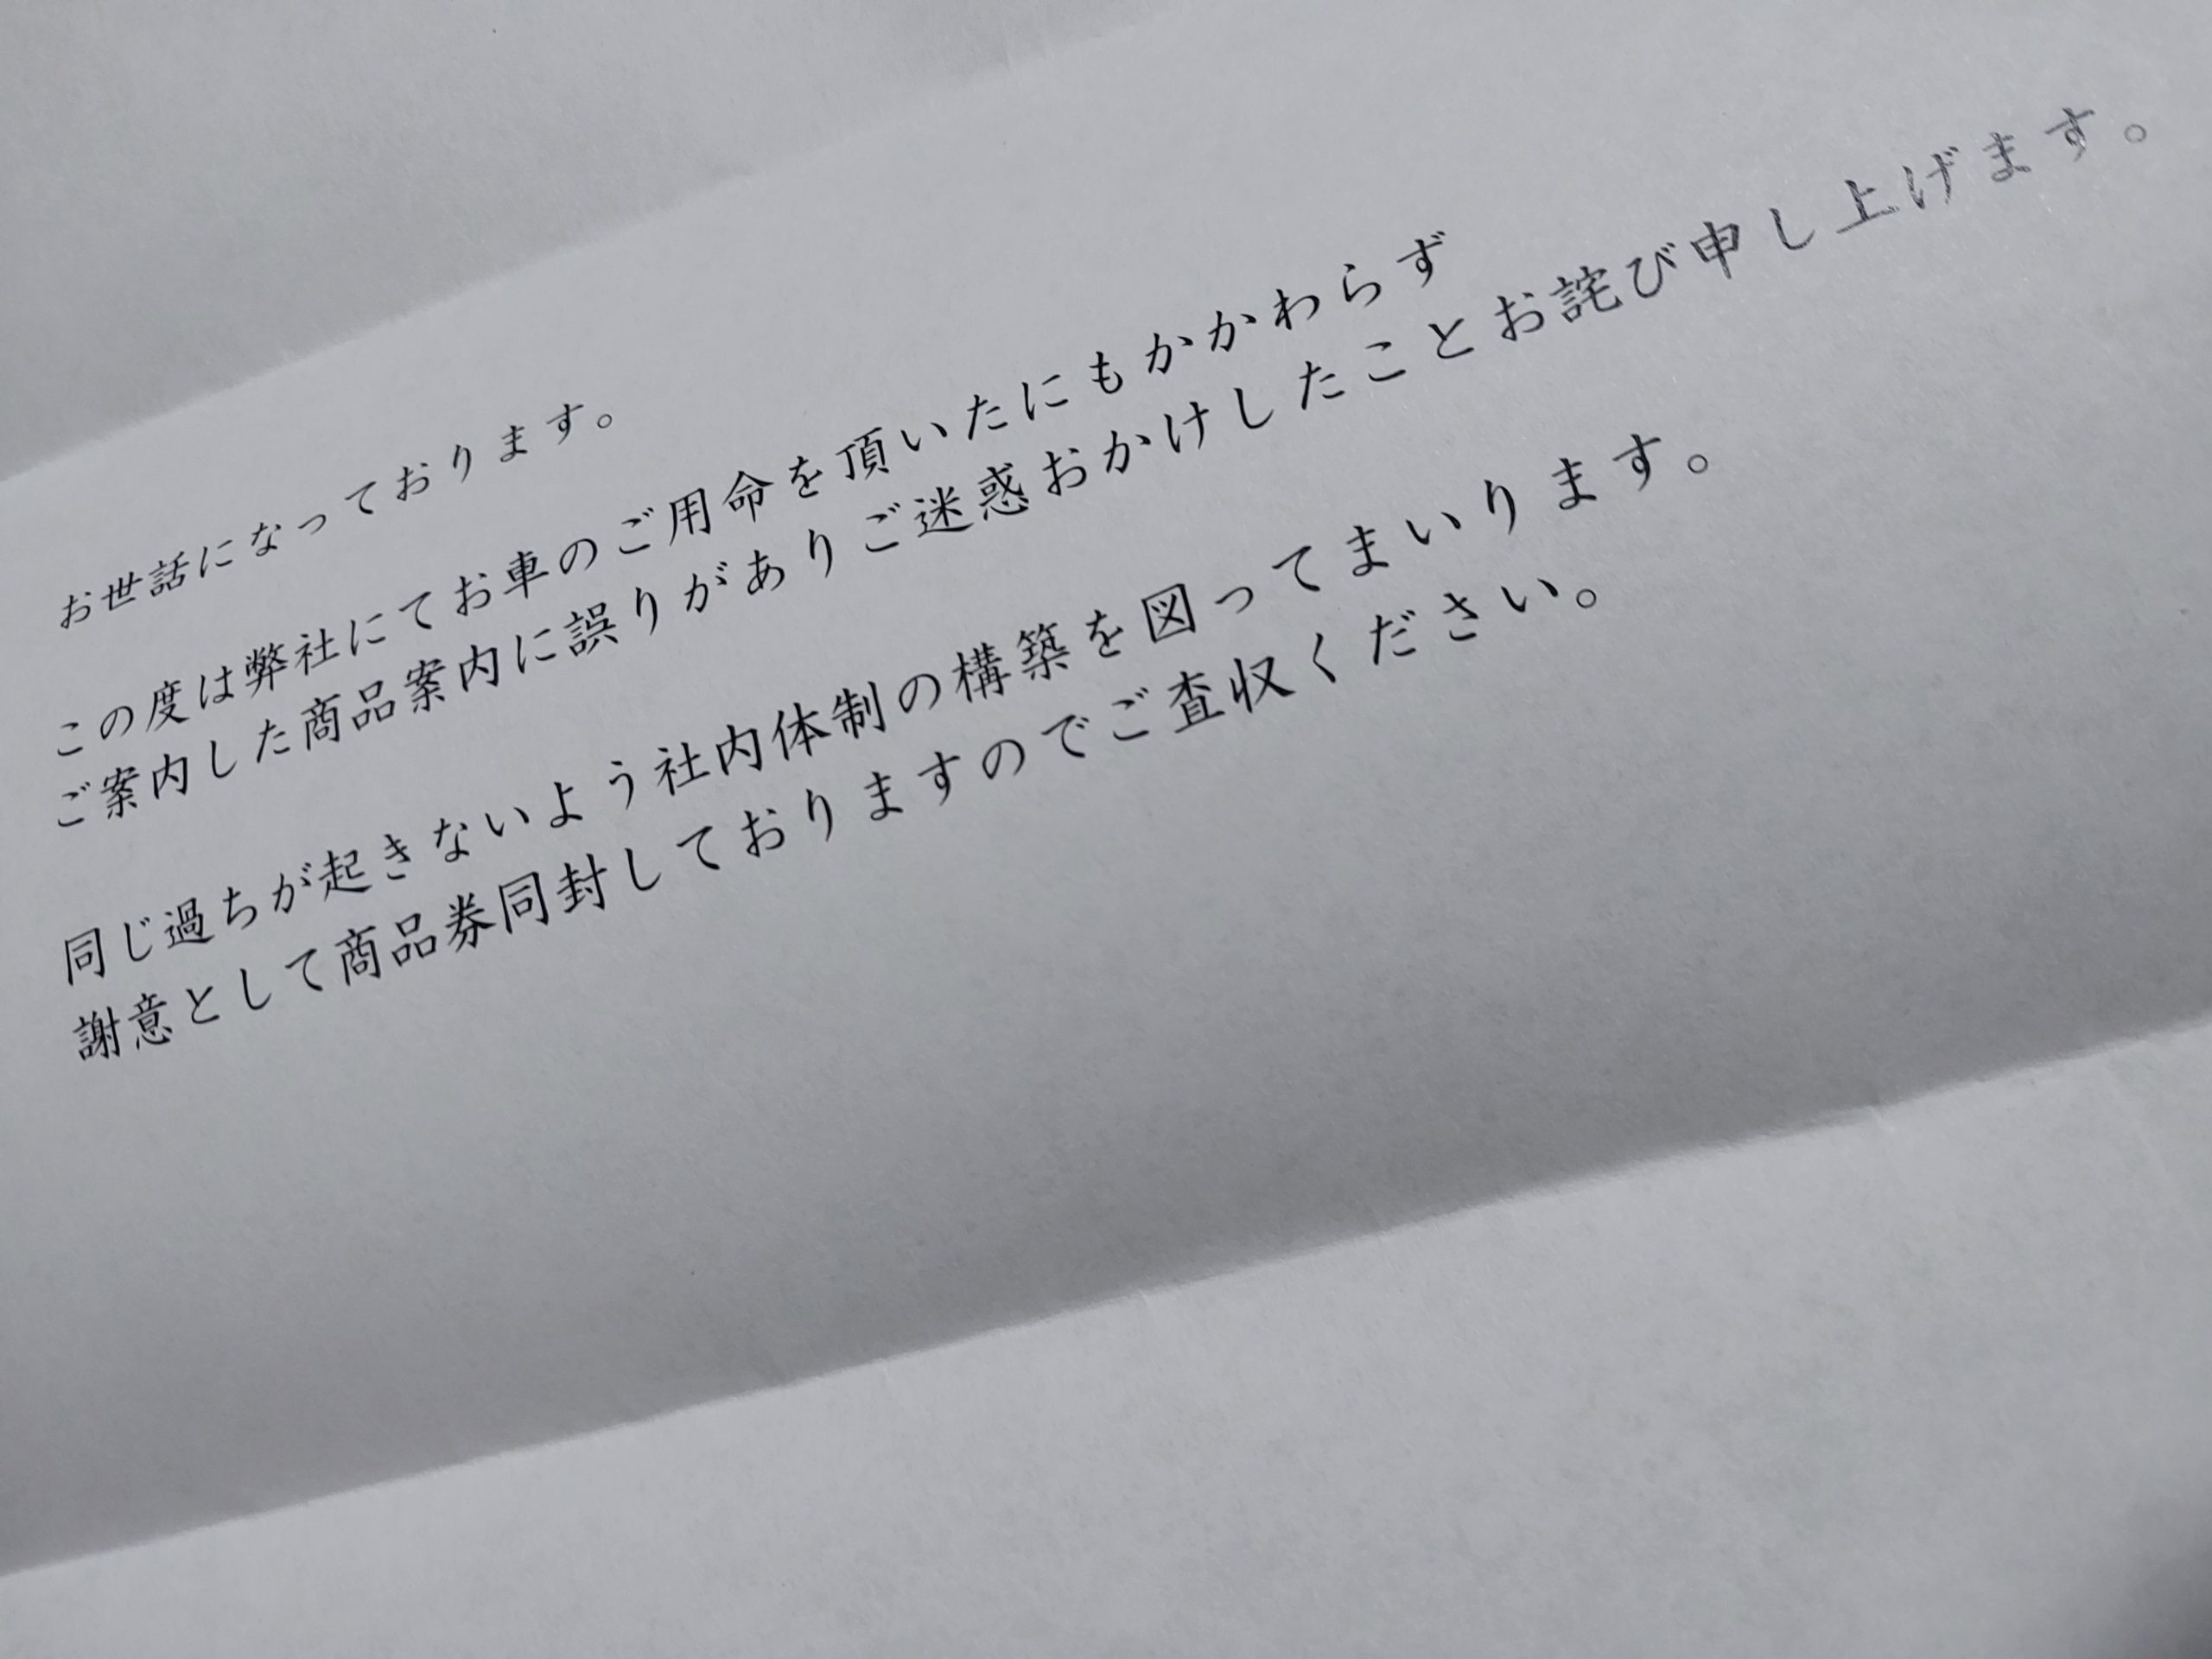 お世話になっております。
この度は弊社にてお車のご用命を頂いたにもかかわらず
ご案内した商品案内に誤りがありご迷惑おかけしたことお詫び申し上げます。
同じ過ちが起きないよう社内体制の構築を図ってまいります。
謝意として商品券同封しておりますのでご査収ください。